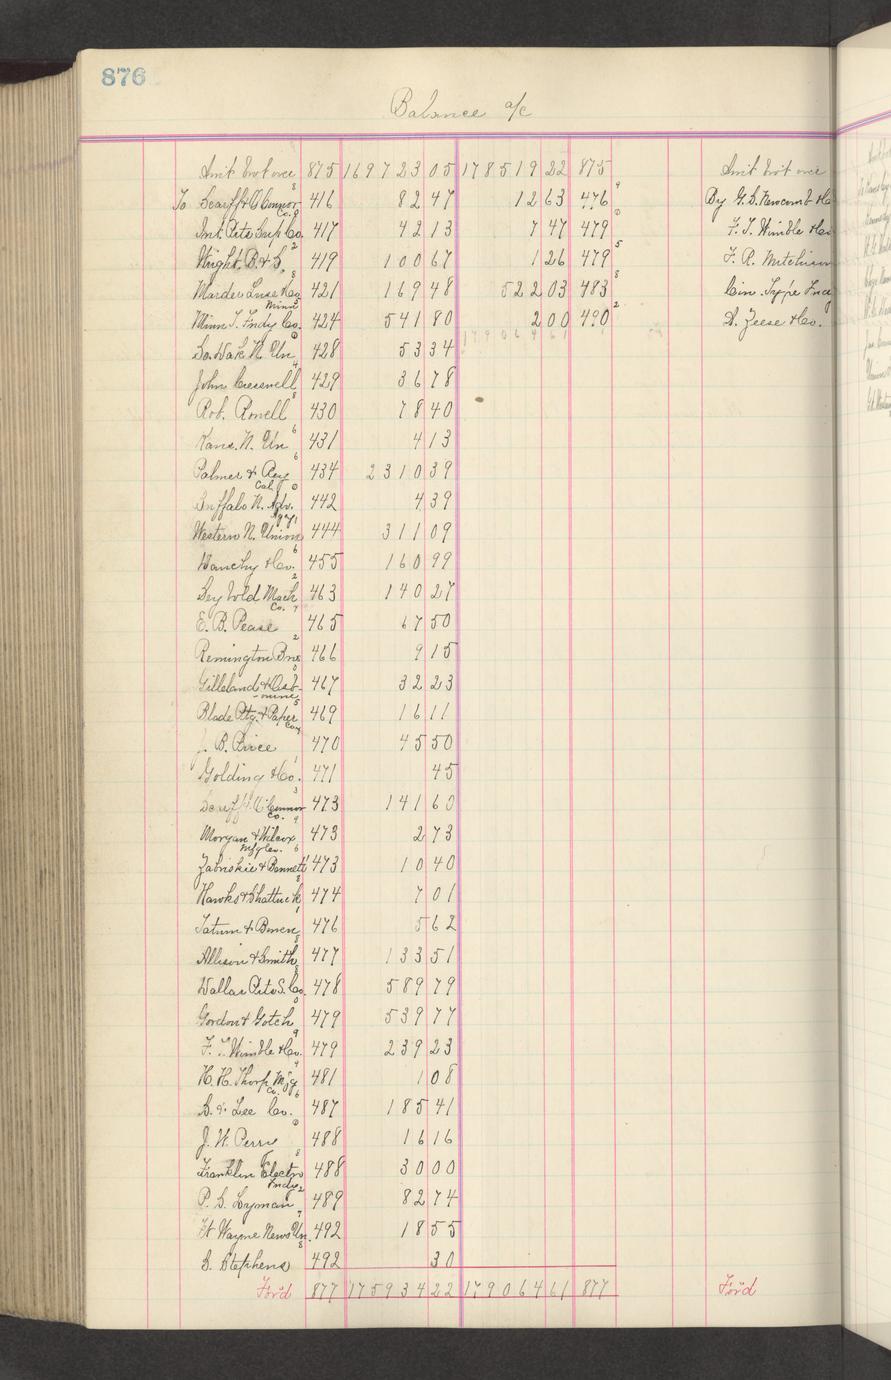 876
Balance a/c
Am't bro't over 875 169723 05 178519 22 875 Am't bro't over
To Scarff & O'Connor Co. 416 82 47 12 63 476 By G. S. Newcomb & Co
Int. Ptrs Sup Co. 417 42 13 7 47 479 F. T. Wimble & Co
Wright, B. & S. 419 100 67 1 26 479 F. R. Mitchison
Marder Luse & Co Minn 421 169 48 522 03 483 Cin. Type Fndy
Minn T. Fndy Co. 424 541 80 2 00 490 A. Zeese & Co.
So. Dak N. Un 428 53 34 179064 61
John Creswell 429 36 78
Rob. Rowell 430 78 40
Kans. N. Un 431 4 13
Palmer & Rey Cal 434 2310 39
Buffalo N. Adv. Agy 442 4 39
Western N. Union 444 311 09
Hanchy & Co. 455 160 99
Seybold Mach Co. 463 140 27
E. B. Pease 465 67 50
Remington Bros 466 9 15
Gilleland & Osbourne 467 32 23
Blade Ptg. & Paper Coy 469 16 11
J. B. Price 470 45 50
Golding & Co. 471 45
Scarff & O'Connor Co. 473 141 60
Morgan & Wilcox Mfg Co. 473 2 73
Zabriskie & Bennett 473 10 40
Hawks & Shattuck 474 7 01
Tatum & Bowen 476 5 62
Allison & Smith 477 133 51
Dallas Ptrs S. Co. 478 589 79
Gordon & Gotch 479 539 77
F. T. Wimble & Co. 479 239 23
H. H. Thorp Mfg Co. 481 1 08
Lee Co. 487 185 41
J. W. Perry 488 16 16
Franklin Electro Fndy 488 30 00
P. S. Lyman 489 82 74
Ft Wayne News Un. 492 18 55
S. Stephens 492 30
For'd 877 175934 22 179064 61 877 For'd